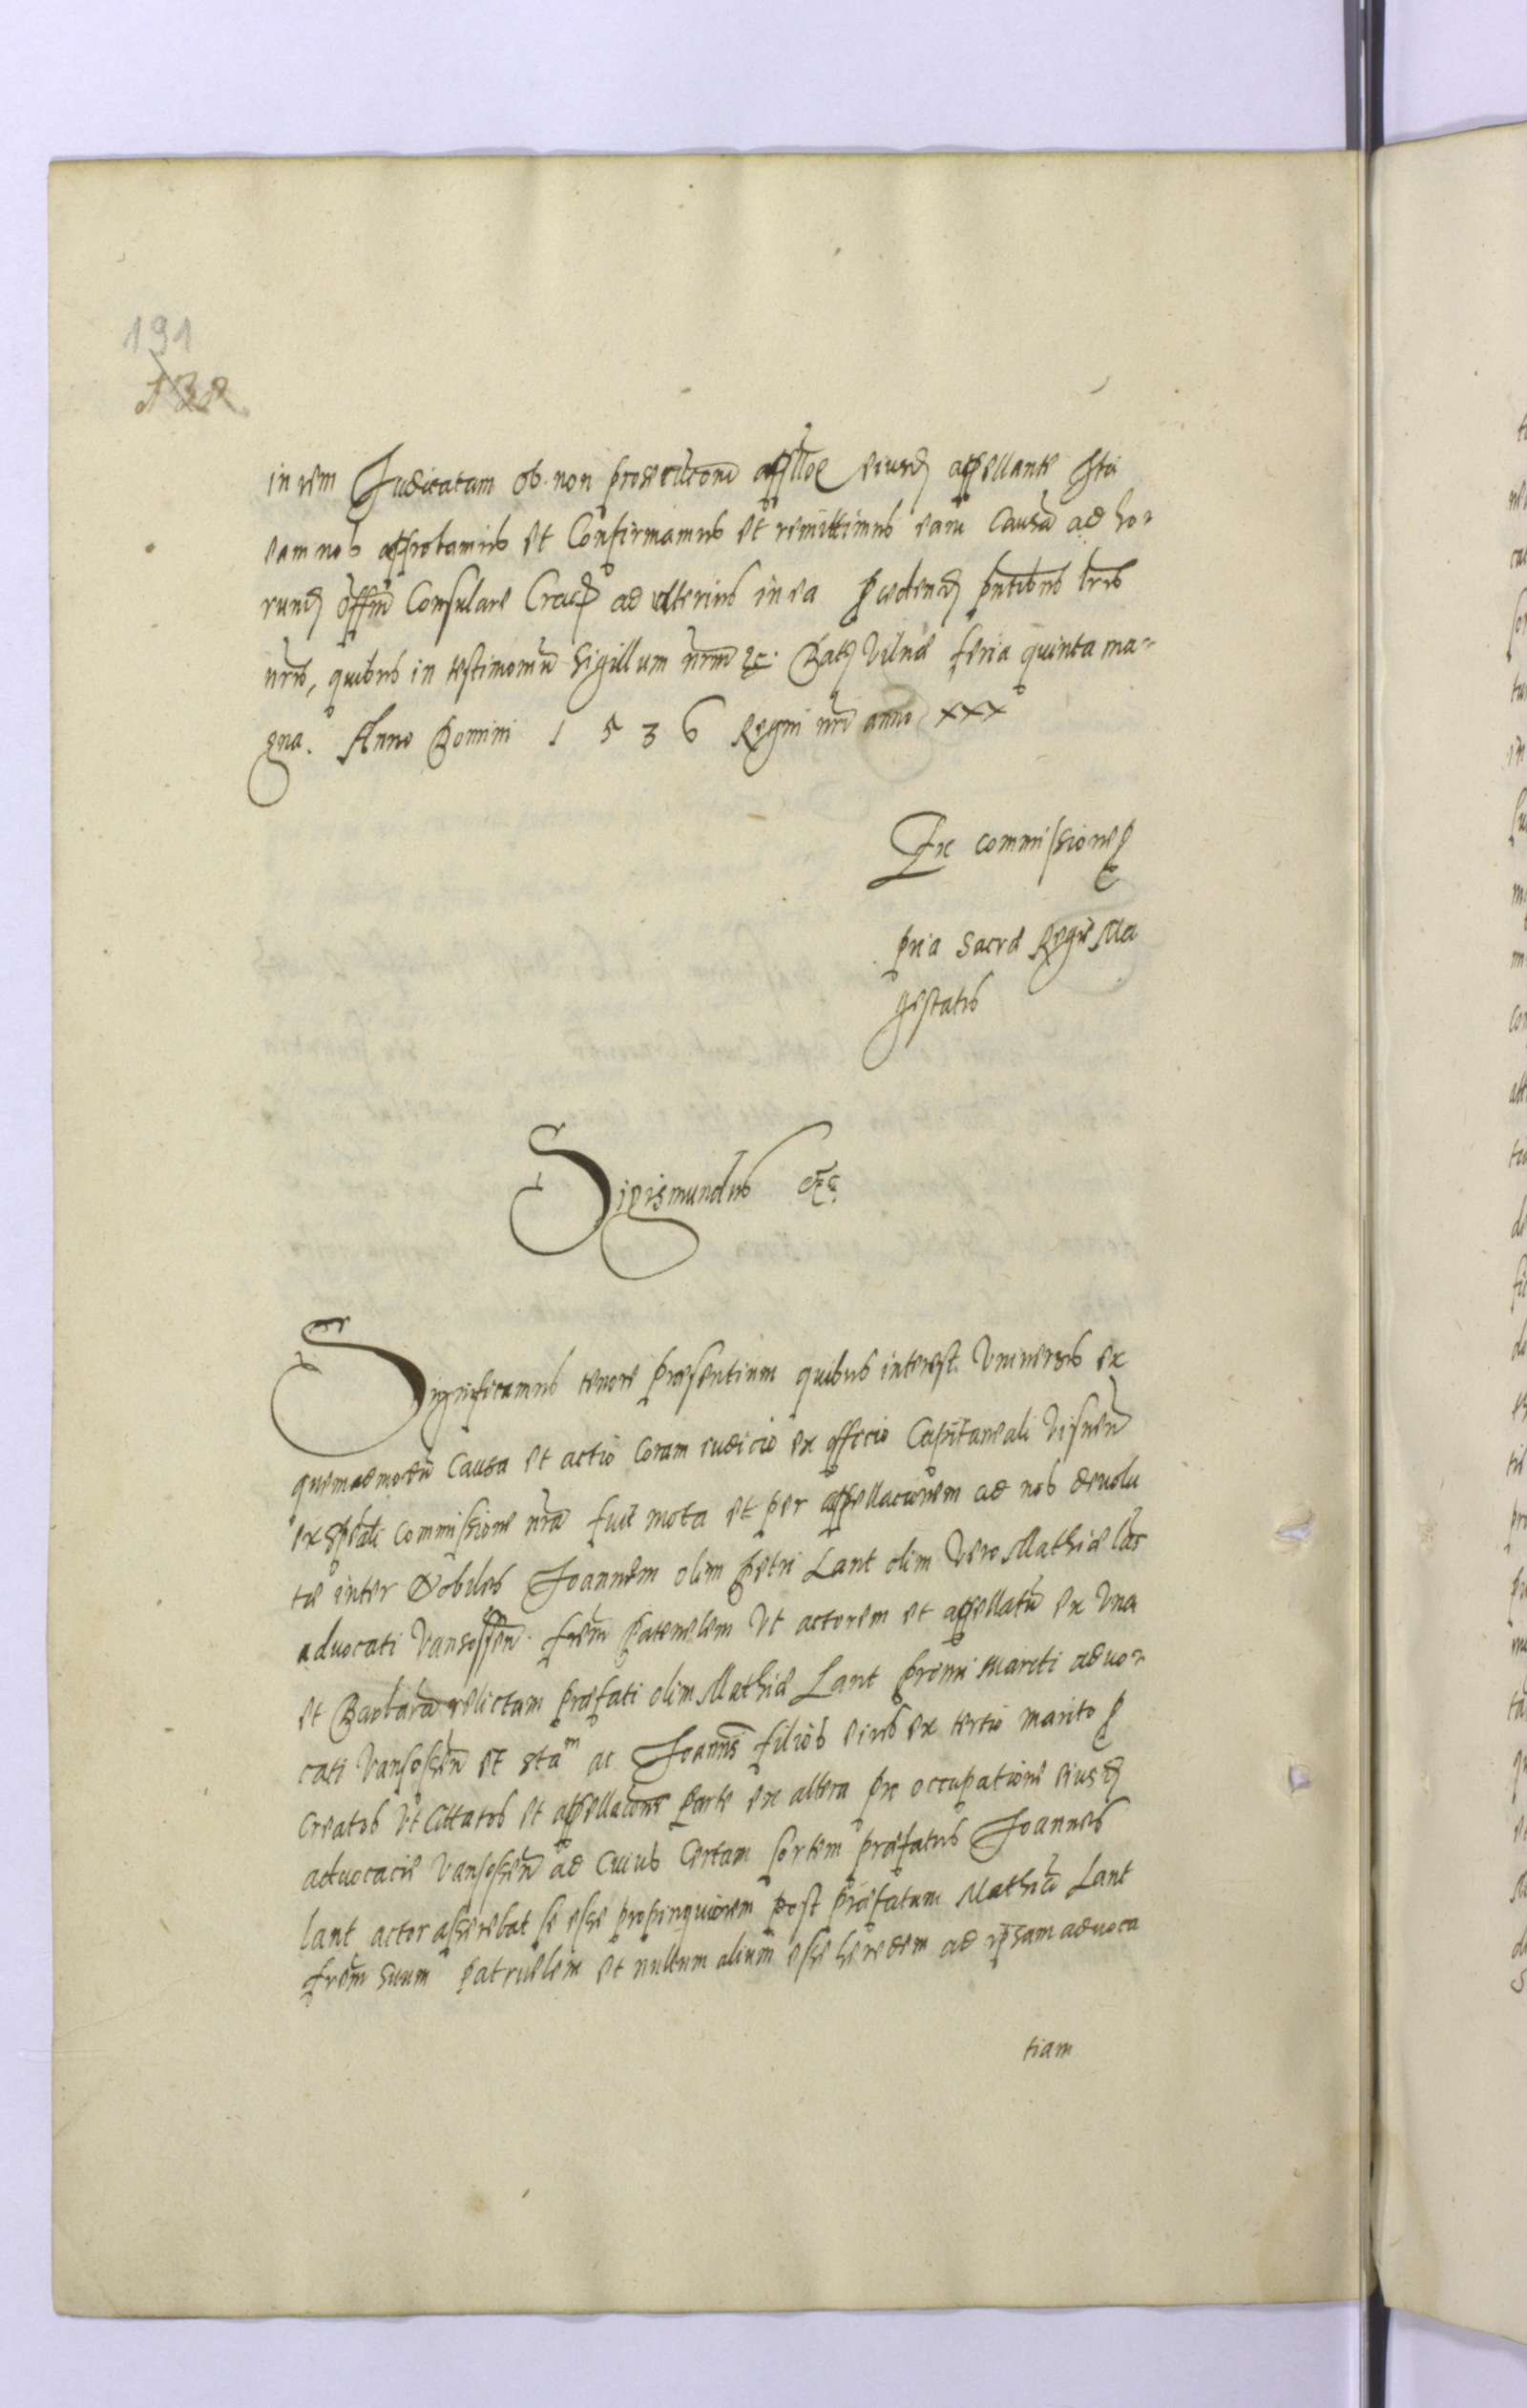 191
in rem Judicatam ob non prosecucom appellōe eiusd appellante Ita
eam nos approbamus et Confirmamus et remittimus eam Causā ad ho-
rund offm Consulare Crac ad ulterius in ea pcedend pntibus lris
nris, quibus in testimoniū Sigillum nrm &c. Dat Vilnæ feria quinta ma-
gna. Anno Domini 1536 Regni nri anno XXX
Ex commissione p
pria Sacræ Regiæ Ma
gestatis
Sigismundus etc.
Significamus tenore præsentium quibus interest Universis ex
quemadmodū Causa et actio Coram iudicio ex officio Capitaneali Visnen
ex spēali Commissione nra fuit mota et per appellacionem ad nos devolu
tæ inter Nobiles Joannem olim Petri Lant olim vero Mathiæ
advocati Vansossen frem Patruelem Ut actorem et appellatū ex Una
et Barbarā relictam præfati olim Mathiæ Lant primi mariti advo-
cati Vansossen et ac Joannis filios eius ex tertio marito p
creatos Ut Cittatos et appellacone Parte ex altera pr occupatione eiusd
advocatiæ Vansossen ad Cuius Certam sortem præfatus Joannes
Lant actor asserebat se esse propinquiorem post præfatum Mathiā Lant
frem suum patruelem et nullum alium esse heredem ad ipsam advoca
tiam